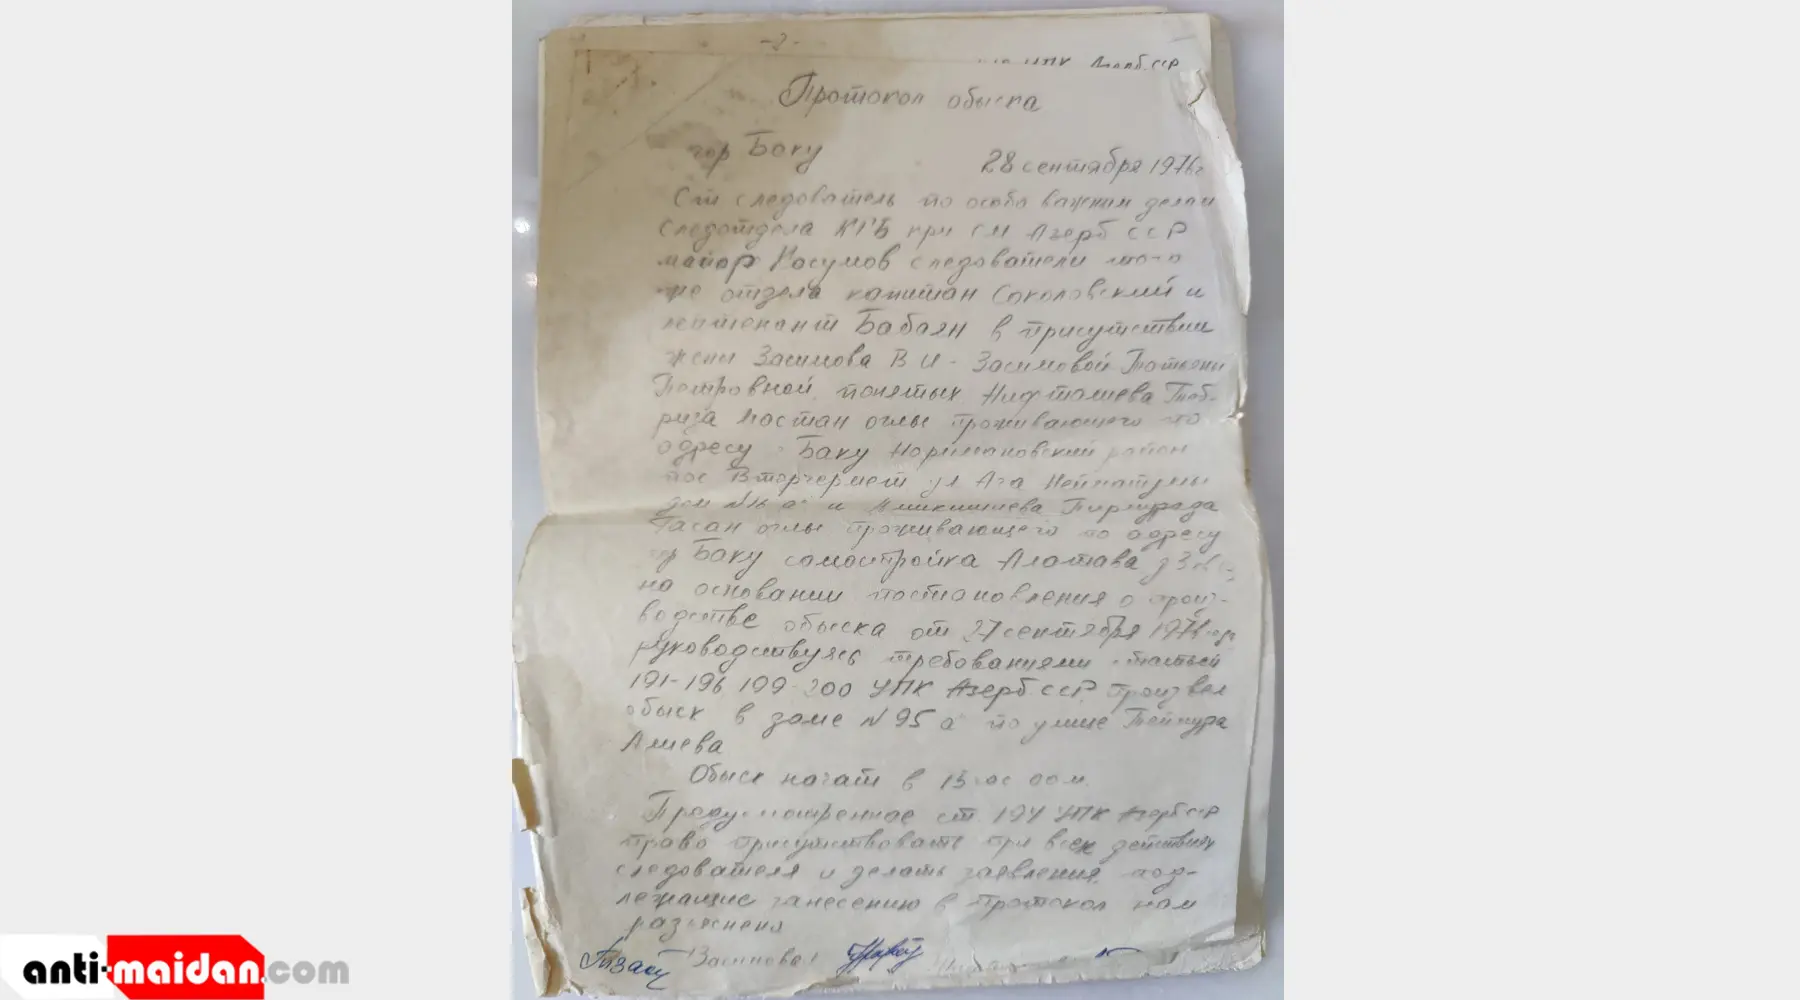 -2-
УПК Азерб.ССР
Протокол обыска
гор Баку
28 сентября 1976г
Ст следователь по особо важным делам
Следотдела КГБ при СМ Азерб ССР
майор Касумов следователи того
же отдела капитан Соколовский и
лейтенант Бабаян в присутствии
жены Засимова В И - Засимовой Татьяны
Петровной, понятых Нифталиева Таб-
риза Мастан оглы проживающего по
адресу Баку Наримановский район
пос Вторчермет ул Ага Нейматуллы
дом и
Гасан оглы проживающего по адресу
гор Баку самостройка Алатава
на основании постановления о произ-
водстве обыска от 27 сентября 1976
руководствуясь требованиями статьей
191-196 199-200 УПК Азерб.ССР произвел
обыск в доме №95 а по улице Теймура
Алиева
Обыск начат в 15 час 00 м.
Предусмотренное ст 194 УПК Азерб ССР
право присутствовать при всех действиях
следователя и делать заявления, под-
лежащие занесению в протокол нам
разъяснено
Засимова
anti-maidan.com